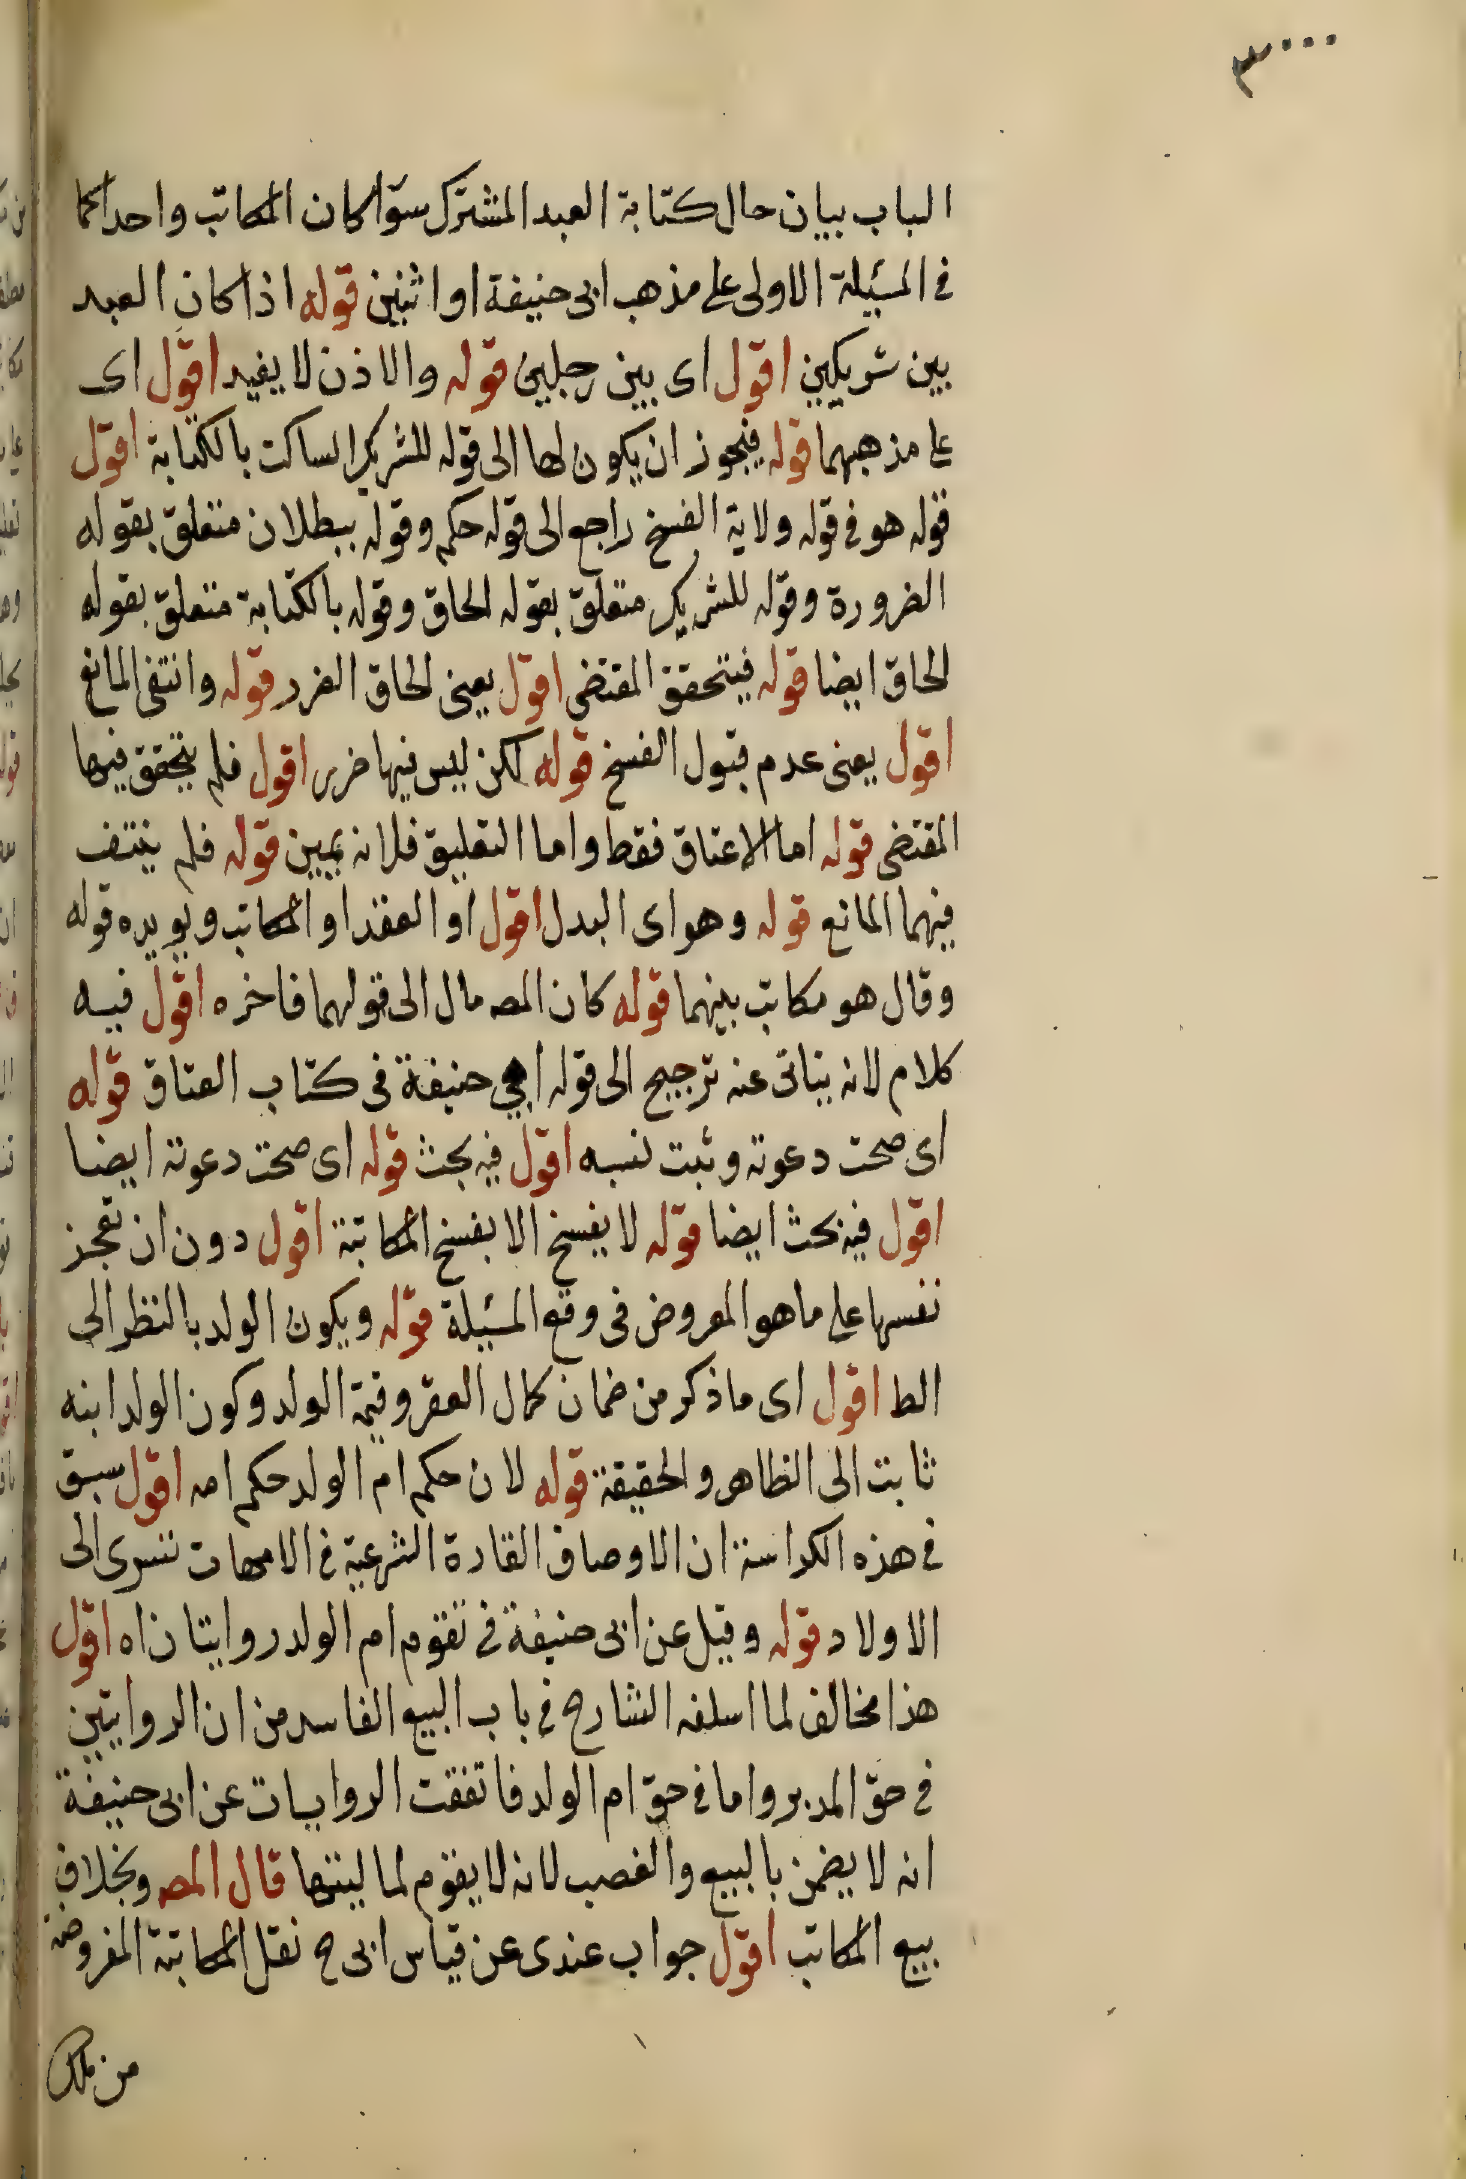 الباب بيان حال كتابة العبد المشترك سوآ كان المكاتب واحدا كما
في المسئيلة الاولى على مذهب ابى حنيفة او اثنين قوله اذا كان العبد
بين شريكين اقول اى بين رجلين قوله والاذن لا يفيد اقول اى
على مذهبهما قوله فيجوز ان يكون لها الى قوله للشريك الساكت بالكتابة اقول
قوله هو فى قوله ولاية الفسخ راجع الى قوله حكم وقوله ببطلان متعلق بقوله
الضرورة وقوله للشريك متعلق بقوله الحاق وقوله بالكتابة متعلق بقوله
الحاق ايضا قوله فيتحقق المقتضى اقول يعنى الحاق الضرر قوله وانتفى المانع
اقول يعنى عدم قبول الفسخ قوله لكن ليس فيها ضرر اقول فلم يتحقق فيها
المقتضى قوله اما الاعتاق فقط واما التعليق فلانه يمين قوله فلم ينتف
فيهما المانع قوله وهو اى البدل اقول او العقد او المكاتب ويويده قوله
وقال هو مكاتب بينهما قوله كان المصه مال الى قولهما فاخره اقول فيه
كلام لانه يناتى عنه ترجيح الى قوله ابي حنيفة فى كتاب العتاق قوله
اى صحت دعوته وثبت نسبه اقول فيه بحث قوله اى صحت دعوته ايضا
اقول فيه بحث ايضا قوله لا يفسخ الا بفسخ المكاتبة اقول دون ان تعجز
نفسها على ما هو المعروض فى وقع المسئيلة قوله ويكون الولد بالنظر الى
الط اقول اى ما ذكر من ضمان كمال العقر وقيمة الولد وكون الولد ابنه
ثابت الى الظاهر والحقيقة قوله لان حكم ام الولد حكم امه اقول سبق
فى هذه الكراسة ان الاوصاف القارة الشرعية فى الامهات تسرى الى
الاولاد قوله وقيل عن ابى حنيفة فى تقوم ام الولد روايتان اه اقول
هذا مخالف لما اسلفه الشارح فى باب البيع الفاسد من ان الروايتين
فى حق المدبر واما فى حق ام الولد فاتفقت الروايات عن ابى حنيفة
انه لا يضمن بالبيع والغصب لانه لا يقوم لماليتها قال المصه وبخلاف
بيع المكاتب اقول جواب عندى عن قياس ابى ح نقل المكاتبة المفروضة